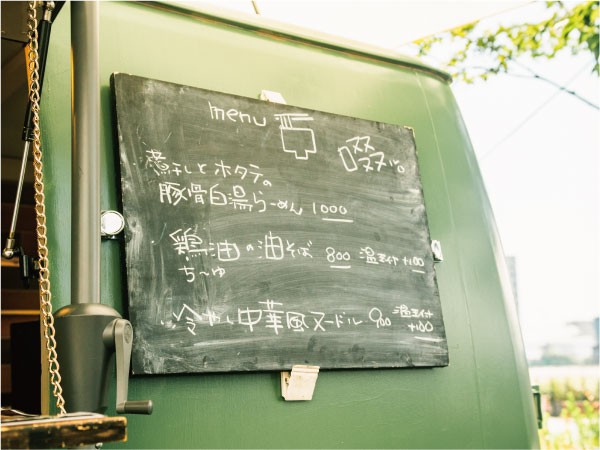 menu
煮干しとホタテの
豚骨白湯らーめん 1000
・鶏油の油そば 800 温玉付 +100
ち〜ゆ
・冷やし中華風ヌードル 900 温玉付 +100